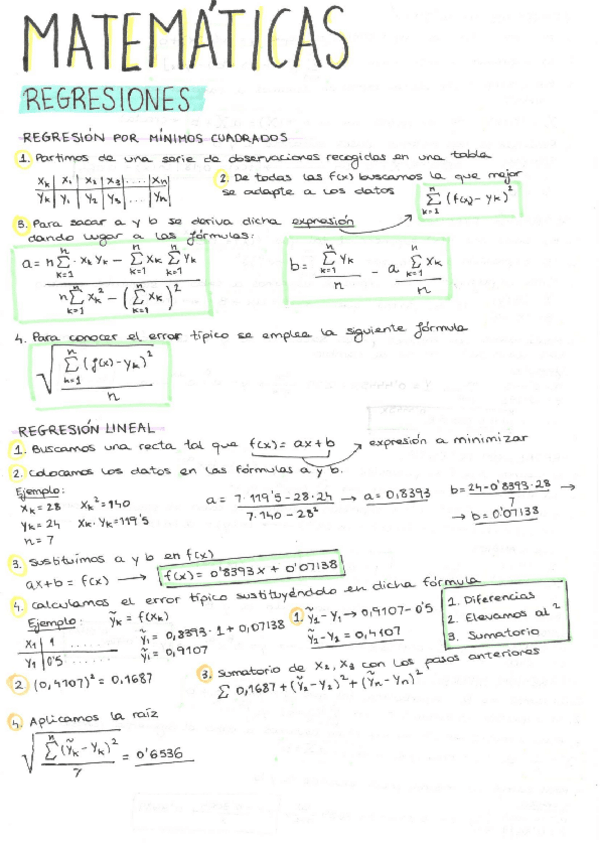 MATEMÁTICAS
REGRESIONES
REGRESIÓN POR MÍNIMOS CUADRADOS
1. Partimos de una serie de observaciones recogidas en una tabla
Xk | X1 | X2 | X3 | .... | Xn
Yk | Y1 | Y2 | Y3 | ... | Yn
2. De todas las f(x) buscamos la que mejor
se adapte a los datos
n∑k=1 (f(x) - yk)²
3. Para sacar a y b se deriva dicha expresión
dando lugar a las fórmulas:
a = (n n∑k=1 · xk yk - n∑k=1 xk n∑k=1 yk) / (n n∑k=1 xk² - (n∑k=1 xk)²)
b = (n∑k=1 yk) / n - a (n∑k=1 xk) / n
4. Para conocer el error típico se emplea la siguiente fórmula
√((n∑k=1 (f(x) - yk)²) / n)
REGRESIÓN LINEAL
1. Buscamos una recta tal que f(x) = ax + b → expresión a minimizar
2. Colocamos los datos en las fórmulas a y b.
Ejemplo:
xk = 28 xk² = 140
yk = 24 xk · yk = 119'5
n = 7
a = (7 · 119'5 - 28 · 24) / (7 · 140 - 28²) → a = 0,8393
b = (24 - 0'8393 · 28) / 7 →
→ b = 0'07138
3. Sustituimos a y b en f(x)
ax + b = f(x) → f(x) = 0'8393 x + 0'07138
4. Calculamos el error típico sustituyéndolo en dicha fórmula
Ejemplo: ỹk = f(xk)
X1 | 1 ......
Y1 | 0'5
ỹ1 = 0,8393 · 1 + 0,07138
ỹ1 = 0,9107
1. ỹ1 - y1 → 0,9107 - 0'5
ỹ1 - y1 = 0,4107
1. Diferencias
2. Elevamos al ²
3. Sumatorio
2 (0,4107)² = 0,1687
3. Sumatorio de x2, x3 con los pasos anteriores
∑ 0,1687 + (ỹ2 - y2)² + (ỹn - yn)²
4. Aplicamos la raíz
√((n∑ (ỹk - yk)²) / 7) = 0'6536